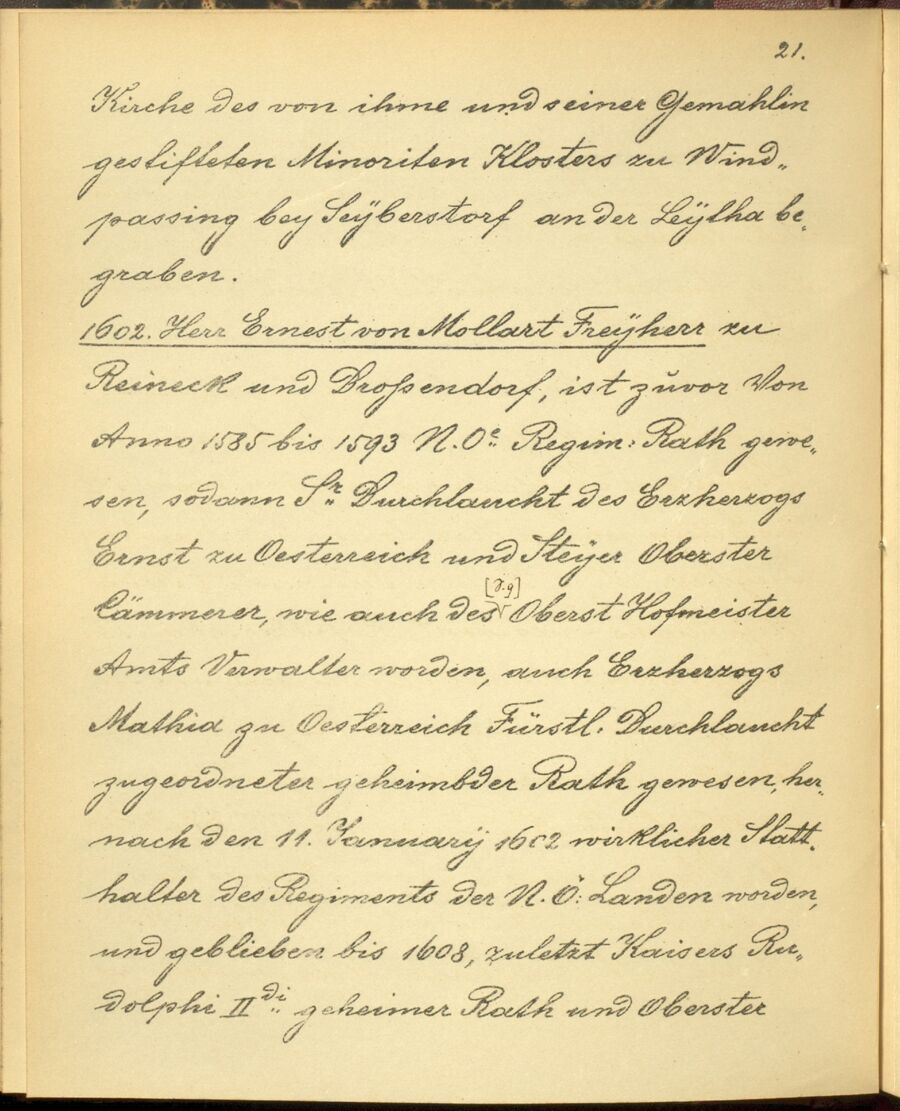 21.
Kirche des von ihme und seiner Gemahlin
gestifteten Minoriten Klosters zu Wind„
passing bey Seÿberstorf an der Leÿtha be„
graben.
1602. Herr Ernest von Mollart Freÿherr zu
Reineck und Droßendorf, ist zŭvor Von
Anno 1585 bis 1593 N.Oe. Regim: Rath gewe„
sen, sodann Sr. Durchlaucht des Erzherzogs
Ernst zu Oesterreich und Steÿer Oberster
Cämmerer, wie auch des Oberst Hofmeister
Amts Verwalter worden, auch Erzherzogs
Mathia zu Oesterreich Fürstl. Durchlaucht
zugeordneter geheimbder Rath gewesen, her„
nach den 11. Januarÿ 1602 wirklicher Statt„
halter des Regiments der N.Ö: Landen worden,
und geblieben bis 1608, zuletzt Kaisers Ru„
dolphi II di. geheimer Rath und Oberster